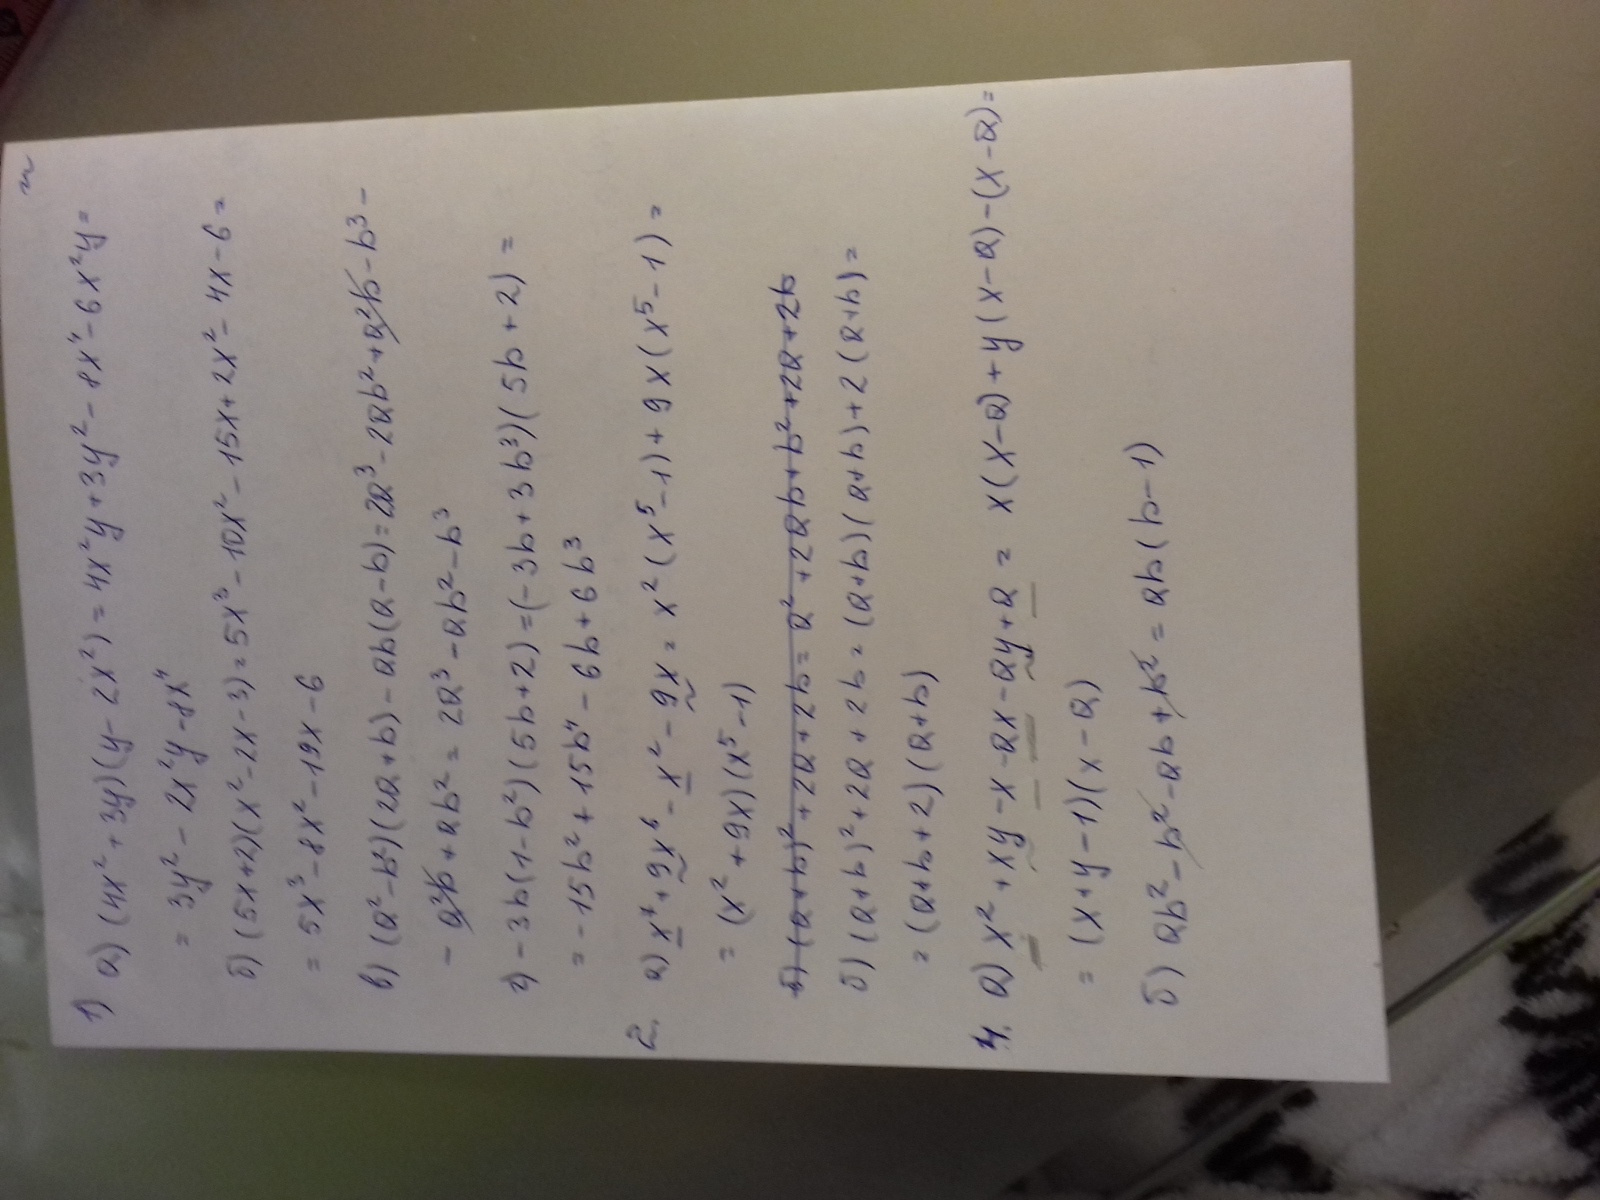 1) а) (4x² + 3y)(y - 2x²) = 4x²y + 3y² - 8x⁴ - 6x²y =
= 3y² - 2x²y - 8x⁴
б) (5x+2)(x² - 2x - 3) = 5x³ - 10x² - 15x + 2x² - 4x - 6 =
= 5x³ - 8x² - 19x - 6
в) (a² - b²)(2a + b) - ab(a - b) = 2a³ - 2ab² + a²b - b³ -
- a²b + ab² = 2a³ - ab² - b³
г) - 3b(1 - b²)(5b + 2) = (- 3b + 3b³)(5b + 2) =
= - 15b² + 15b⁴ - 6b + 6b³
2. а) x⁷ + 9x⁶ - x² - 9x = x²(x⁵ - 1) + 9x(x⁵ - 1) =
= (x² + 9x)(x⁵ - 1)
б) (a+b)² + 2a + 2b = a² + 2ab + b² + 2a + 2b
б) (a+b)² + 2a + 2b = (a+b)(a+b) + 2(a+b) =
= (a+b+2)(a+b)
4. а) x² + xy - x - ax - ay + a = x(x - a) + y(x - a) - (x - a) =
= (x + y - 1)(x - a)
б) ab² - b² - ab + b² = ab(b - 1)